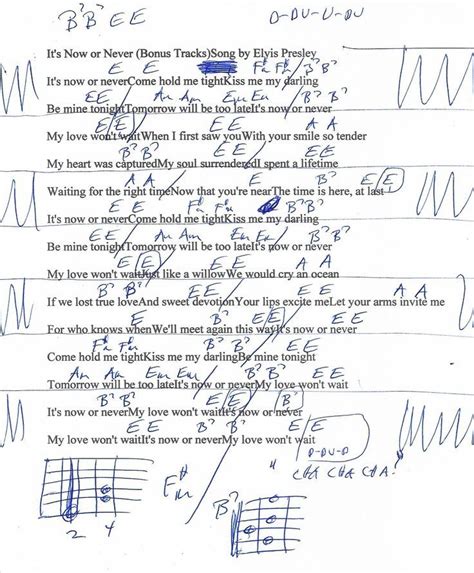 B7 B7 E E D-DU-U-DU
It's Now or Never (Bonus Tracks)Song by Elvis Presley
E E F#m F#m B7 B7
It's now or neverCome hold me tightKiss me my darling
E E Am Am Em Em B7 B7
Be mine tonightTomorrow will be too lateIt's now or never
E E E E A A
My love won't waitWhen I first saw youWith your smile so tender
B7 B7 E E E E
My heart was capturedMy soul surrenderedI spent a lifetime
A A E B7 E E
Waiting for the right timeNow that you're nearThe time is here, at last
E E F#m F#m B7 B7
It's now or neverCome hold me tightKiss me my darling
E E Am Am Em Em B7 B7
Be mine tonightTomorrow will be too lateIt's now or never
E E E E A A
My love won't waitJust like a willowWe would cry an ocean
B7 B7 E E E E A A
If we lost true loveAnd sweet devotionYour lips excite meLet your arms invite me
E B7 E E E E
For who knows whenWe'll meet again this wayIt's now or never
F#m F#m B7 B7 E E
Come hold me tightKiss me my darlingBe mine tonight
Am Am Em Em B7 B7 E E
Tomorrow will be too lateIt's now or neverMy love won't wait
B7 B7 E E B7
It's now or neverMy love won't waitIt's now or never
E E B7 B7 E E
My love won't waitIt's now or neverMy love won't wait
D-DU-D
"CHA CHA CHA!"
F#m B7
2 4